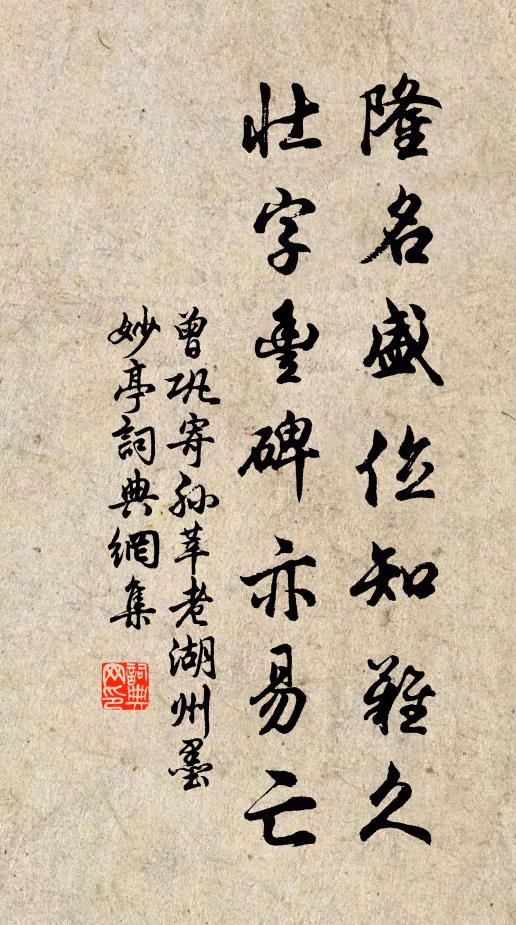 隆名盛位知難久
壯字豐碑亦易亡
曾巩寄孙莘老湖州墨
妙亭詞典網集
詞典网印